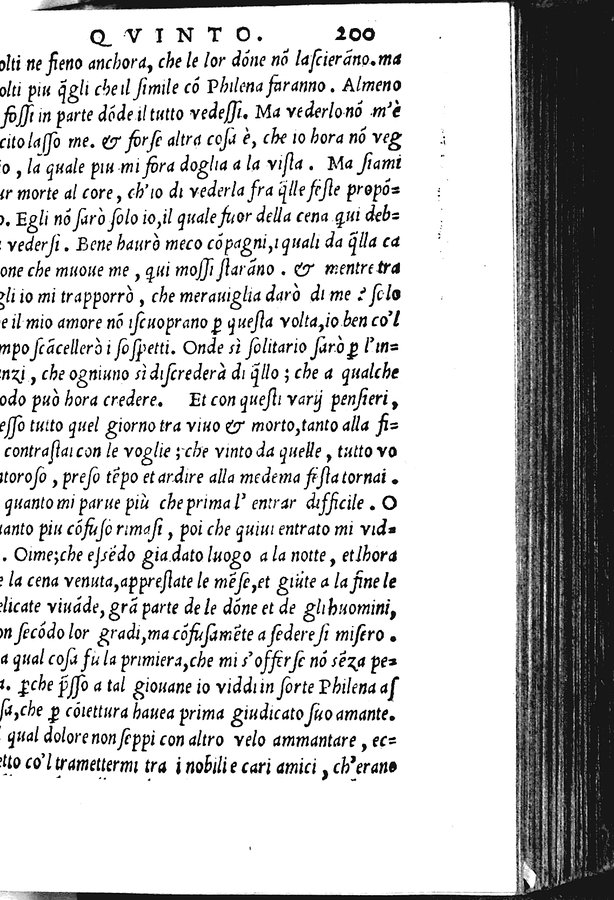 QVINTO. 200
olti ne fieno anchora, che le lor dóne nó laſcierãno. ma
olti piu q̃gli che il ſimile có Philena faranno. Almeno
foſſi in parte dóde il tutto vedeſſi. Ma vederlo nó m'è
cito laſſo me. & forſe altra coſa è, che io hora nó veg
o, la quale piu mi fora doglia a la viſta. Ma ſiami
ur morte al core, ch'io di vederla fra q̃lle feſte propó=
o. Egli nó ſarò ſolo io, il quale fuor della cena qui deb=
vederſi. Bene haurò meco cópagni, i quali da q̃lla ca
one che muoue me, qui moſſi ſtarãno. & mentre tra
gli io mi trapporrò, che merauiglia darò di me? ſe lo
e il mio amore nó iſcuoprano ꝑ queſta volta, io ben co'l
mpo ſcãcellerò i ſoſpetti. Onde sì ſolitario ſarò ꝑ l'in=
nzi, che ogniuno sì diſcrederà di q̃llo; che a qualche
odo può hora credere. Et con queſti varij penſieri,
eſſo tutto quel giorno tra viuo & morto, tanto alla fi=
contraſtai con le voglie; che vinto da quelle, tutto vo
ntoroſo, preſo tẽpo et ardire alla medema feſta tornai.
quanto mi parue più che prima l'entrar difficile. O
uanto piu cófuſo rimaſi, poi che quiui entrato mi vid=
. Oime; che eſsẽdo gia dato luogo a la notte, et lhora
e la cena venuta, appreſtate le mẽſe, et giũte a la fine le
elicate viuãde, grã parte de le dóne et de gli huomini,
on ſecódo lor gradi, ma cófuſamẽte a ſedere ſi miſero.
a qual coſa fu la primiera, che mi s'offerſe nó sẽza pe=
a. ꝑche p̃ſſo a tal giouane io viddi in ſorte Philena aſ
ſa, che ꝑ cóiettura hauea prima giudicato ſuo amante.
qual dolore non ſeppi con altro velo ammantare, ec=
etto co'l tramettermi tra i nobili e cari amici, ch'erano